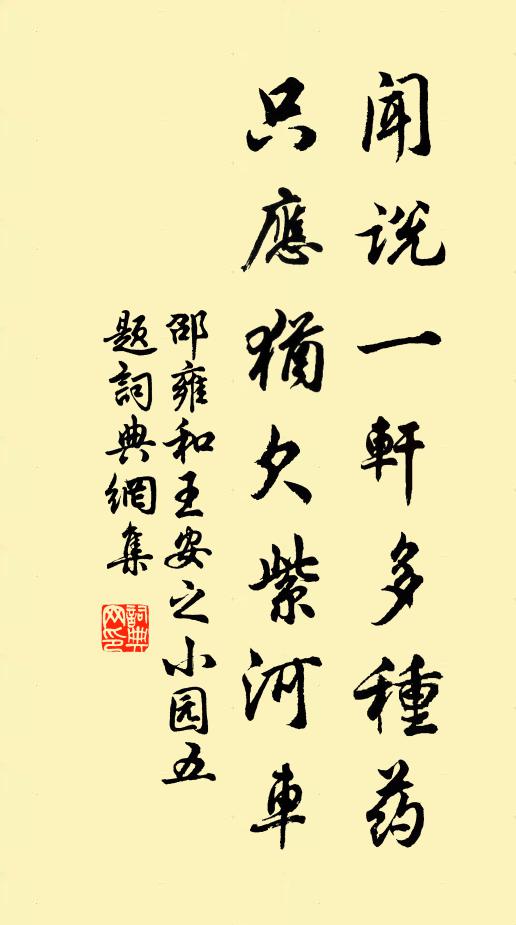 闻说一軒多種药
只應猶欠紫河車
邵雍和王安之小园五
题詞典網集
詞典网印